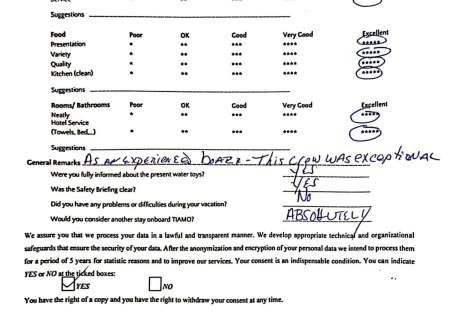 Suggestions
Food Poor OK Good Very Good Excellent
Presentation * ** *** **** *****
Variety * ** *** **** *****
Quality * ** *** **** *****
Kitchen (clean) * ** *** **** *****
Suggestions
Rooms/ Bathrooms Poor OK Good Very Good Excellent
Neatly * ** *** **** *****
Hotel Service
(Towels, Bed,..) * ** *** **** *****
Suggestions
General Remarks AS AN EXPERIENCED BOATER - THIS CREW WAS EXCEPTIONAL
Were you fully informed about the present water toys? YES
Was the Safety Briefing clear? YES
Did you have any problems or difficulties during your vacation? No
Would you consider another stay onboard TIAMO? ABSOLUTELY
We assure you that we process your data in a lawful and transparent manner. We develop appropriate technical and organizational
safeguards that ensure the security of your data. After the anonymization and encryption of your personal data we intend to process them
for a period of 5 years for statistic reasons and to improve our services. Your consent is an indispensable condition. You can indicate
YES or NO at the ticked boxes:
YES NO
You have the right of a copy and you have the right to withdraw your consent at any time.